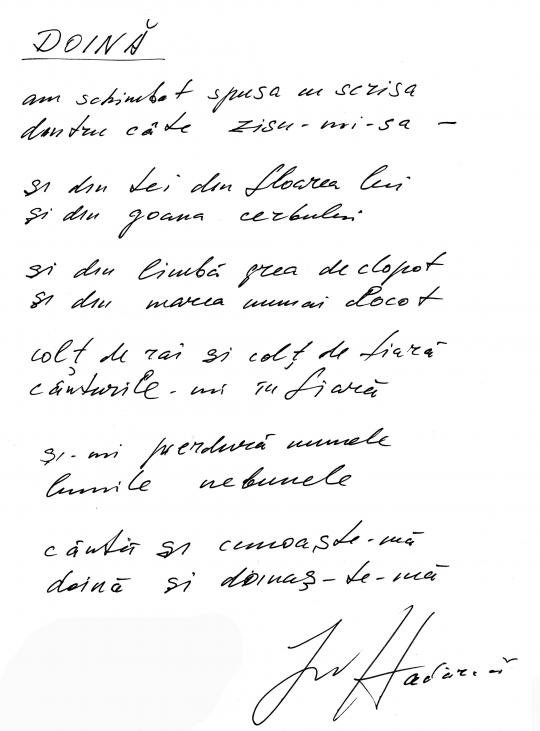 DOINĂ
am schimbat spusa cu scrisa
dintru câte zisu-mi-sa –
și din tei din floarea lui
și din goana cerbului
și din limbă grea de clopot
și din marea numai clocot
colț de rai și colț de fiară
cânturile-mi în fiară
și-mi pierdură numele
lumile nebunele
cântă și cunoaște-mă
doină și doinaș-te-mă